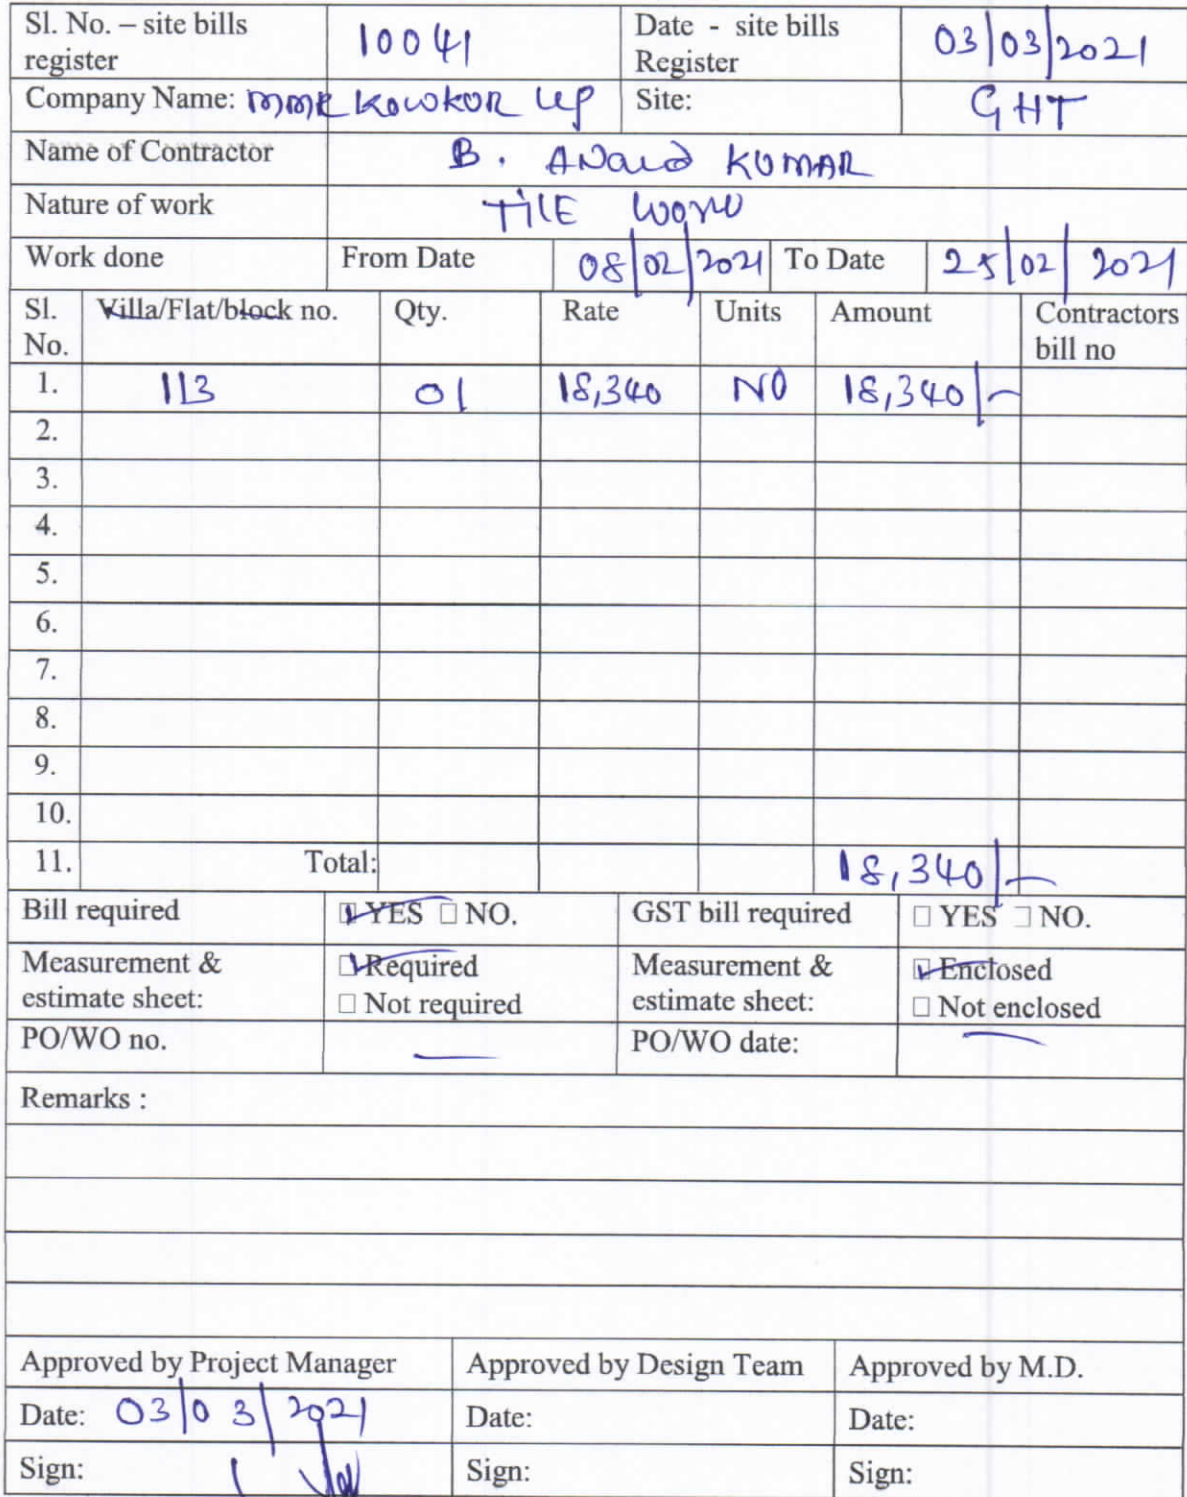 Sl. No. – site bills register 10041 Date - site bills Register 03/03/2021
Company Name: MMR KOWKUR LLP Site: GHT
Name of Contractor B. ANAND KUMAR
Nature of work TILE WORK
Work done From Date 08/02/2021 To Date 25/02/2021
Sl. No. Villa/Flat/block no. Qty. Rate Units Amount Contractors bill no
1. 113 01 18,340 NO 18,340/-
2.
3.
4.
5.
6.
7.
8.
9.
10.
11. Total: 18,340/-
Bill required YES NO. GST bill required YES NO.
Measurement & estimate sheet: Required Measurement & estimate sheet: Enclosed
Not required Not enclosed
PO/WO no. — PO/WO date: —
Remarks :
Approved by Project Manager Approved by Design Team Approved by M.D.
Date: 03/03/2021 Date: Date:
Sign: Sign: Sign: